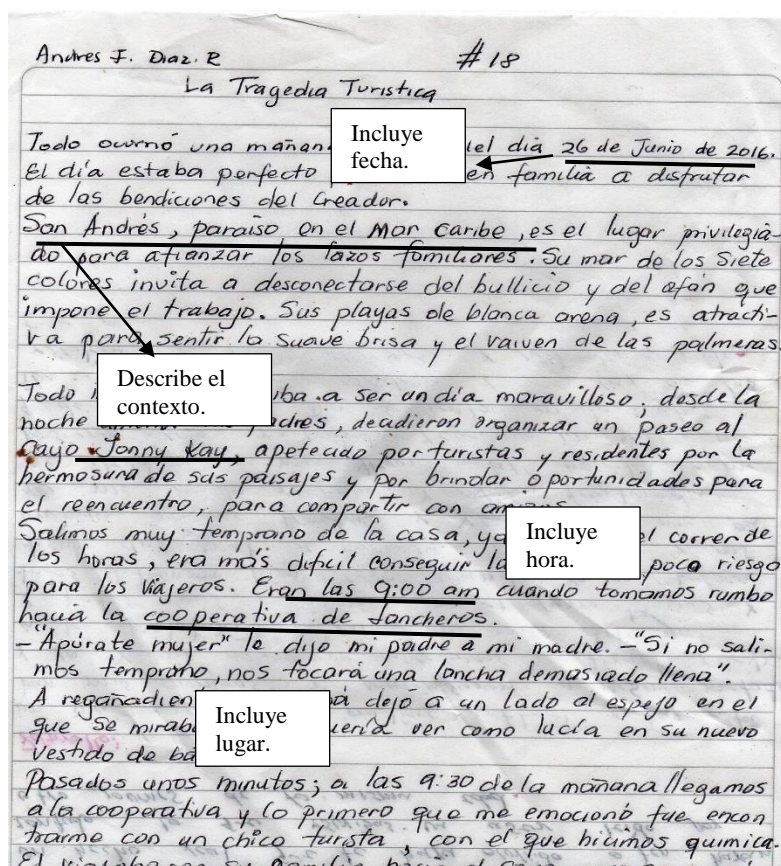 Andres F. Diaz. R #18
La Tragedia Turistica
Todo ocurrió una mañan del dia 26 de Junio de 2016.
El día estaba perfecto en familia a disfrutar
de las bendiciones del Creador.
San Andrés, paraiso en el Mar Caribe, es el lugar privilegia-
do para afianzar los lazos familiares. Su mar de los Siete
colores invita a desconectarse del bullicio y del afán que
impone el trabajo. Sus playas de blanca arena, es atracti-
va para sentir la suave brisa y el vaiven de las palmeras.
Todo iba a ser un día maravilloso, desde la
noche padres, decidieron organizar un paseo al
Cayo Jonny Kay, apetecido por turistas y residentes por la
hermosura de sus paisajes y por brindar oportunidades para
el reencuentro, para compartir con amigos.
Salimos muy temprano de la casa, ya el correr de
los horas, era más dificil conseguir la poco riesgo
para los viajeros. Eran las 9:00 am cuando tomamos rumbo
hacia la cooperativa de lancheros.
-"Apúrate mujer" le dijo mi padre a mi madre. -"Si no sali-
mos temprano, nos tocará una lancha demasiado llena".
A regañadien dejó a un lado al espejo en el
que se miraba ver como lucía en su nuevo
vestido de ba
Pasados unos minutos; a las 9:30 de la mañana llegamos
a la cooperativa y lo primero que me emocionó fue encon
trarme con un chico turista, con el que hicimos quimica
Incluye
fecha.
Describe el
contexto.
Incluye
hora.
Incluye
lugar.